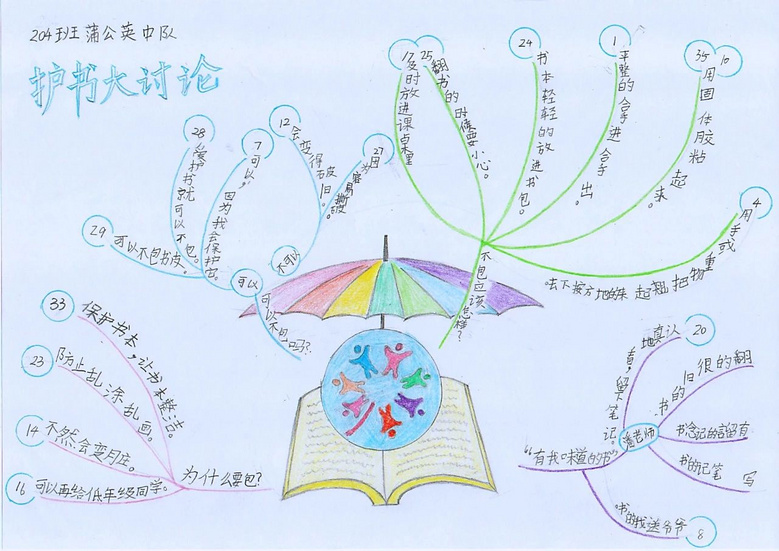 204班蒲公英中队
护书大讨论
28
爱护书就可以不包。
7
可以，因为我会保护它。
12
会变得破旧。
27
因为容易撕破
29
可以不包书皮。
可以
不可以
可以不包吗？
17
及时放进课桌里
25
翻书的时候要小心。
24
书本轻轻的放进书包。
1
平整的合手进合手出。
35
10
用固体胶粘起来。
4
用手或重物把翘起来的地方按下去。
不包应该怎样？
33
保护书本，让书本整洁。
23
防止乱涂乱画。
14
不然会变月庄。
16
可以再给低年级同学。
为什么要包？
20
认真地看，留下笔记。
翻的很旧的书。
有留言的纪念书
写笔记的书
8
爷爷送我的书。
潘老师
“有我味道的书”